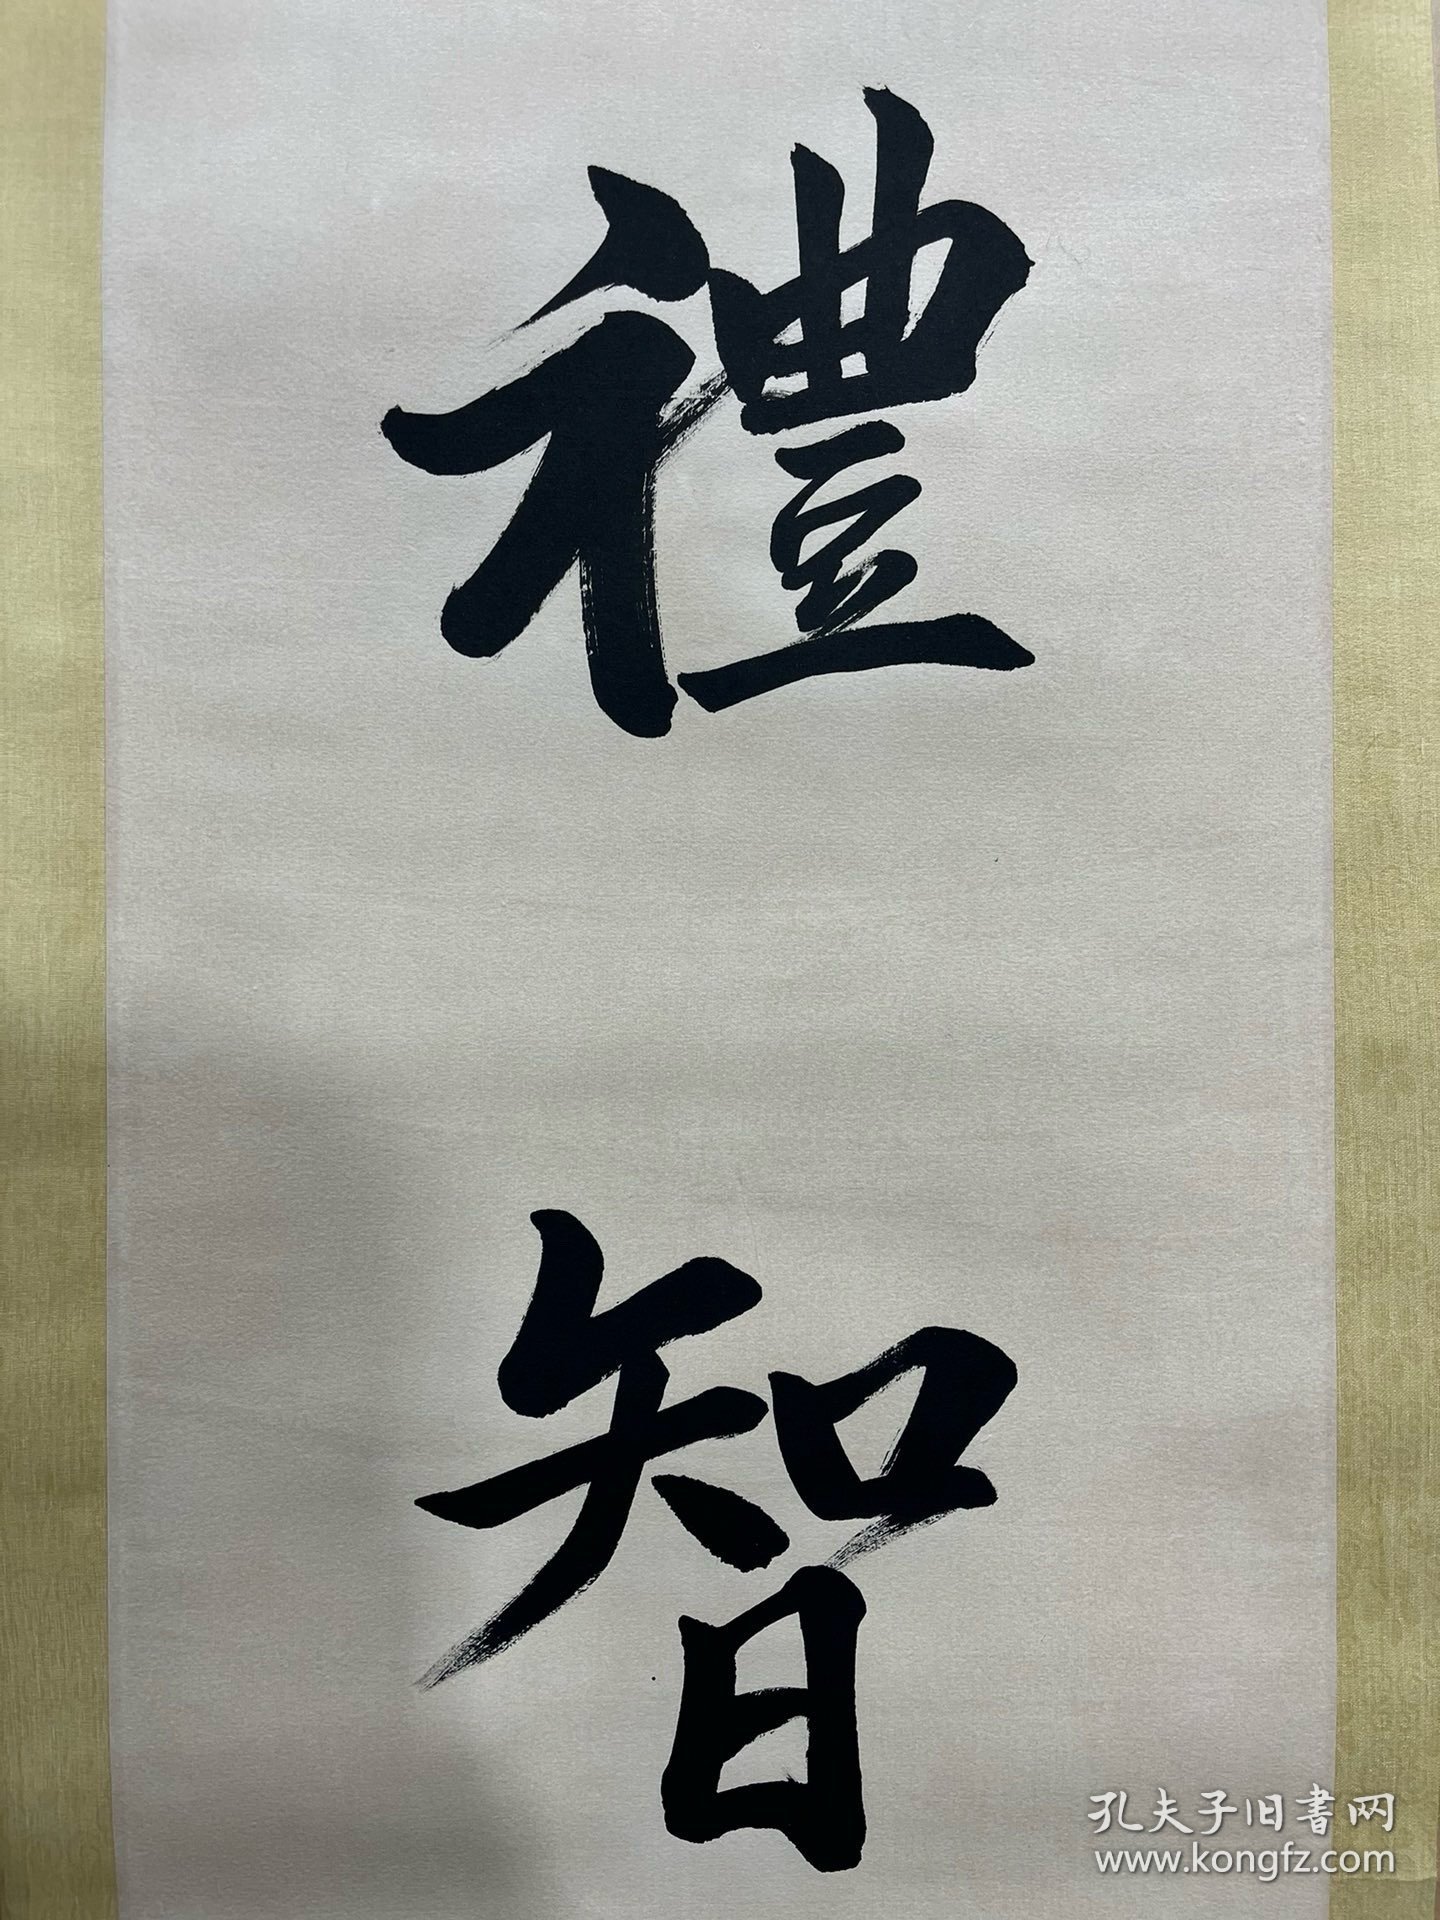 禮
智
孔夫子旧書网
www.kongfz.com